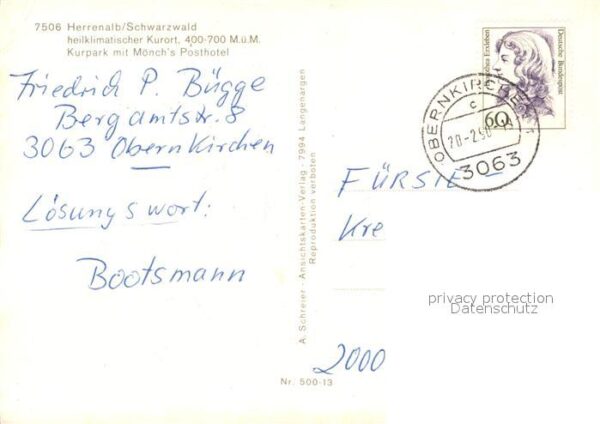 7506 Herrenalb/Schwarzwald
heilklimatischer Kurort, 400-700 M.ü.M.
Kurpark mit Mönch's Posthotel
Friedrich P. Bügge
Bergamtstr. 8
3063 Obernkirchen
Lösungswort:
Bootsmann
A. Schreier - Ansichtskarten-Verlag - 7994 Langenargen
Reproduktion verboten
Nr. 500-13
Deutsche Bundespost
Erxleben
60
OBERNKIRCHEN
c
3063
FÜRSTE
Kre
2000
privacy protection
Datenschutz